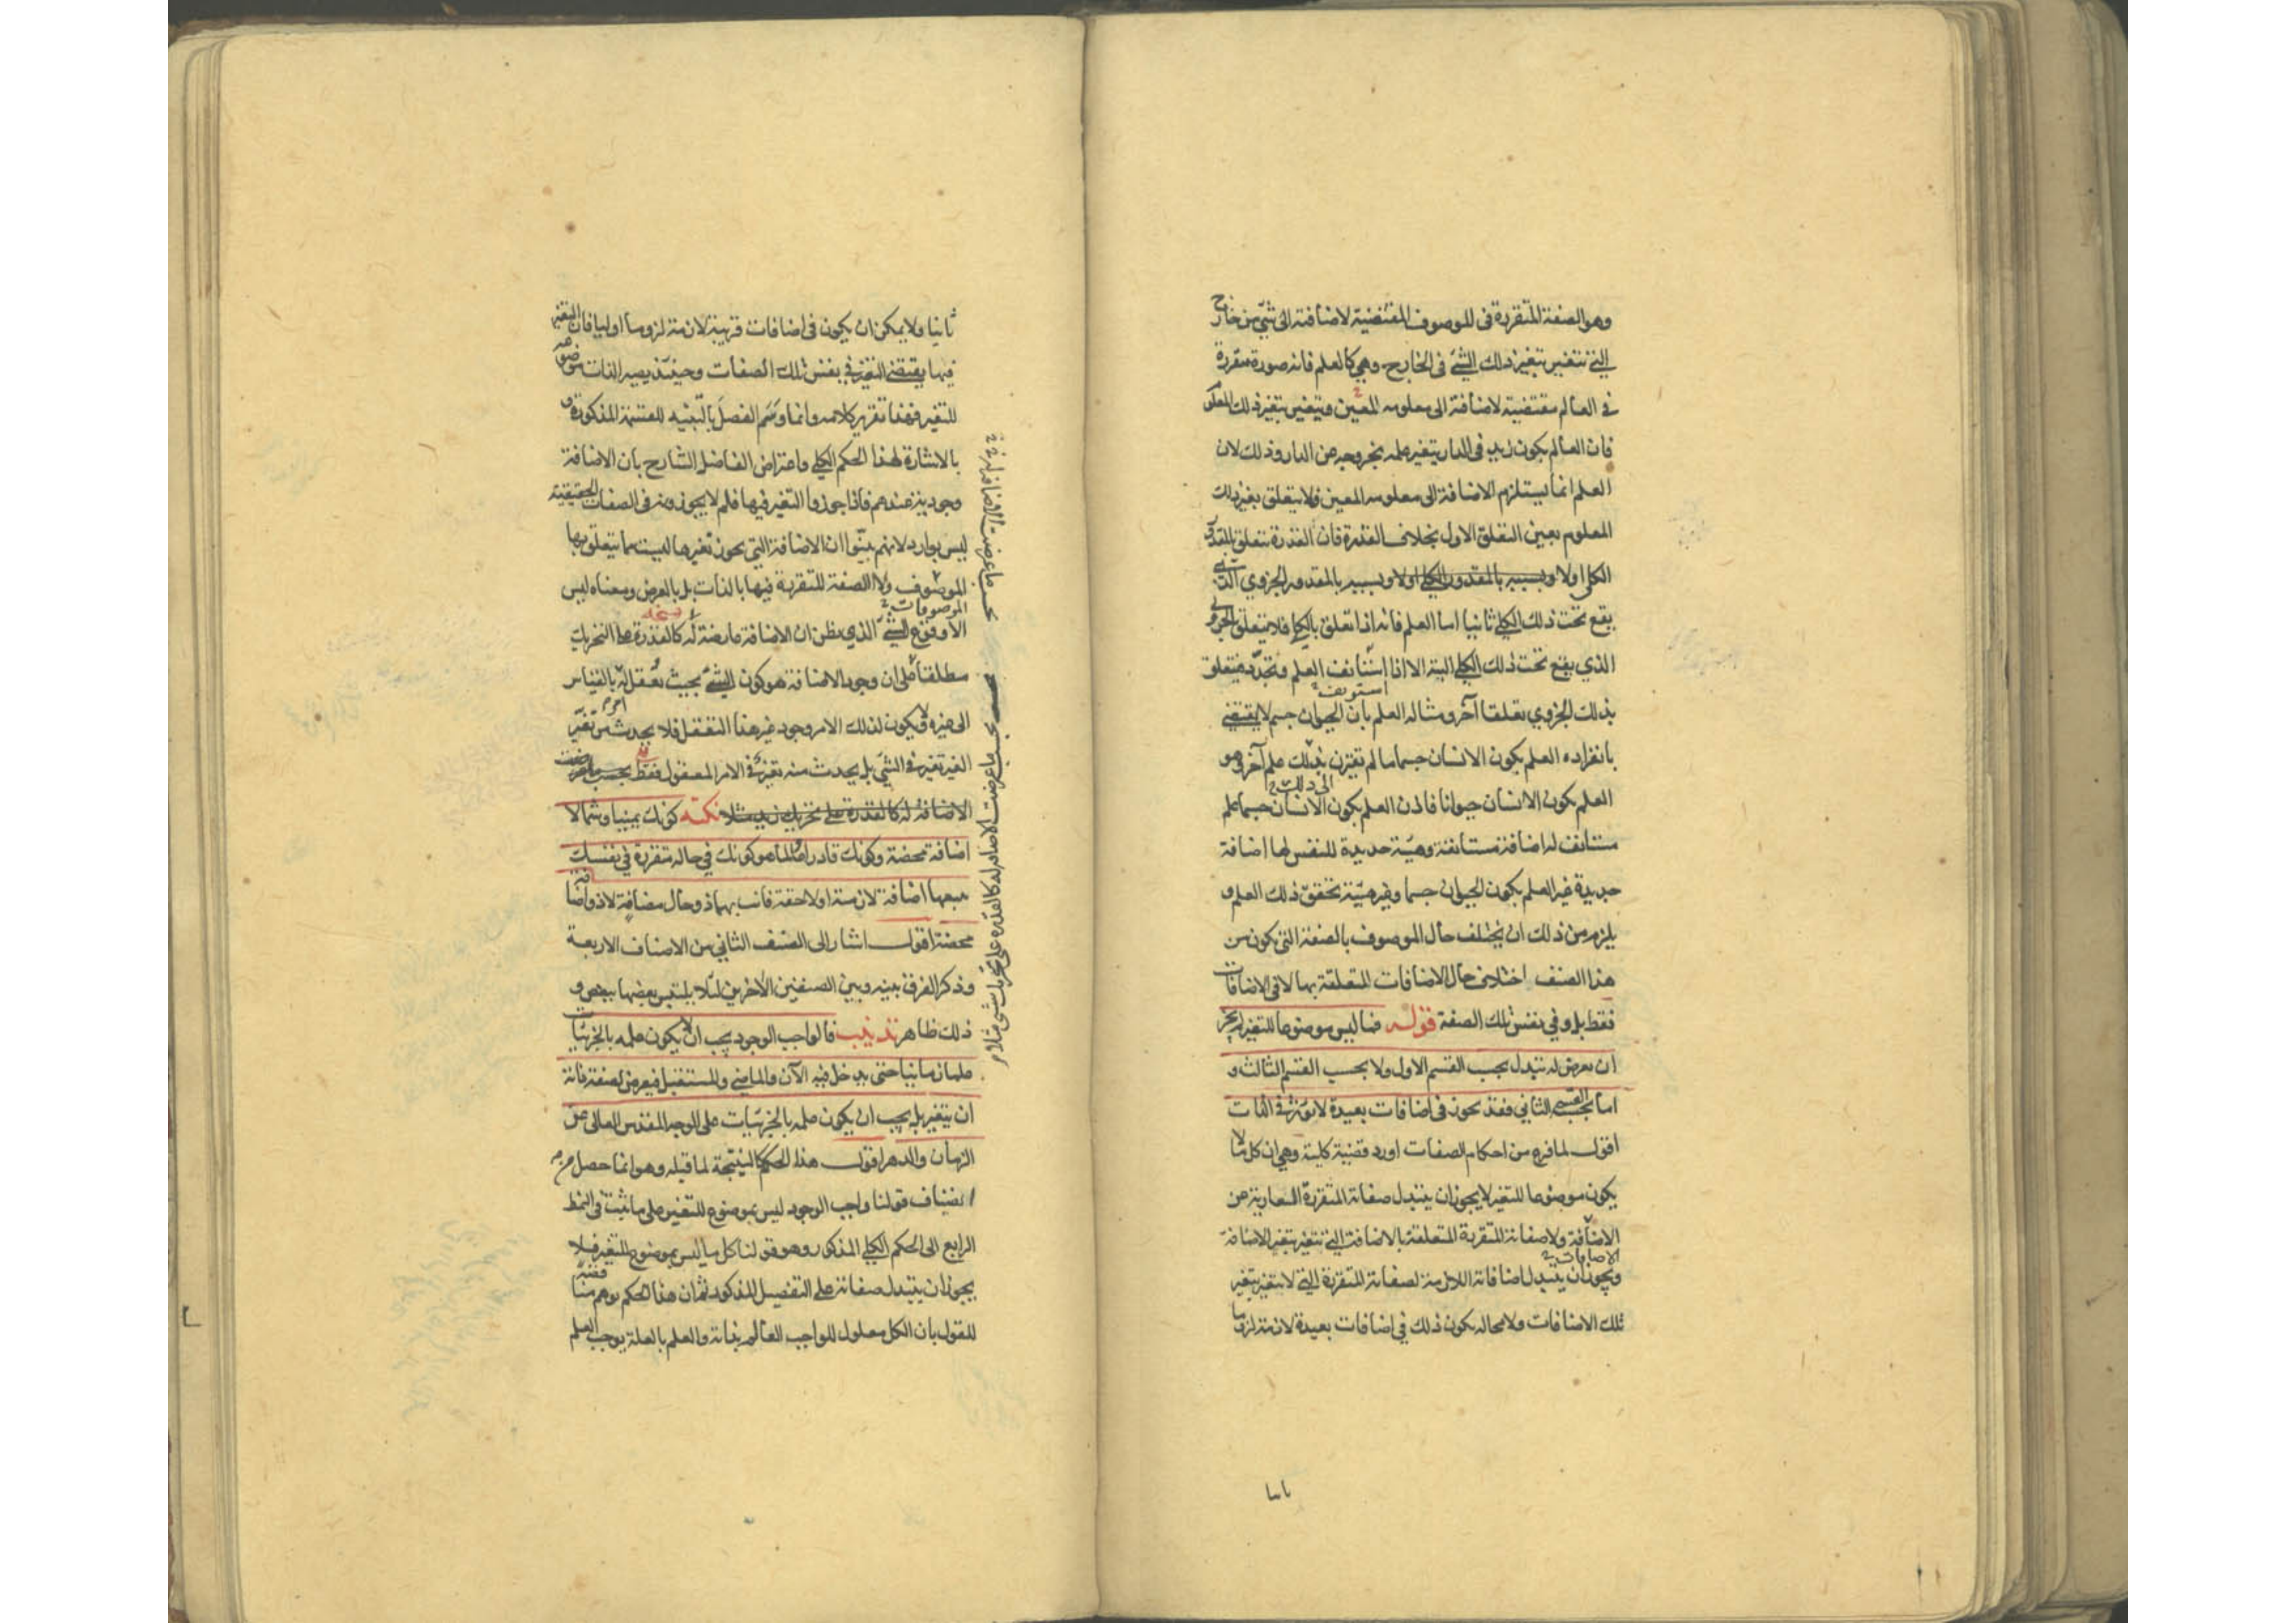 وهو الصفة المتقررة في الموصوف المقتضية لاضافة الى شيء من خارج
التي تتغير بتغير ذلك الشيء في الخارج وهي كالعلم فانه صورة متقررة
في العالم مقتضية لاضافة الى معلومه المعين ويتغير بتغير ذلك المعلوم
فان العالم بكون زيد في الدار يتغير علمه بخروجه عن الدار وذلك لان
العلم انما يستلزم الاضافة الى معلومه المعين فلا يتعلق بغير ذلك
المعلوم بعين التعلق الاول بخلاف القدرة فان القدرة تتعلق بالمقدور
الكلي اولا وبسببه بالمقدور الكلي اولا وبسببه بالمقدور الجزوي الذي
يقع تحت ذلك الكلي ثانيا اما العلم فانه اذا تعلق بالكلي فلا يتعلق بالجزوي
الذي يقع تحت ذلك الكلي البتة الا اذا استانف العلم وتجدد فيتعلق
استونف
بذلك الجزوي تعلقا آخر ومثاله العلم بان الحيوان جسم لا يقتضي
بانفراده العلم بكون الانسان جسما ما لم يقترن بذلك علم آخر وهو
الى ذلك
العلم بكون الانسان حيوانا فاذن العلم بكون الانسان جسما علم
مستانف له اضافة مستانفة وهيئة جديدة للنفس لها اضافة
جديدة غير العلم بكون الحيوان جسما وغير هيئة تحقق ذلك العلم و
يلزم من ذلك ان يختلف حال الموصوف بالصفة التي تكون من
هذا الصنف اختلاف حال الاضافات المتعلقة بها لا في الاضافات
فقط بل وفي نفس تلك الصفة قوله فما ليس موضوعا للتغير لم يجز
ان يعرض له تبدل بحسب القسم الاول ولا بحسب القسم الثالث و
اما بحسب القسم الثاني فقد يجوز في اضافات بعيدة لا تؤثر في الذات
اقول لما فرغ من احكام الصفات اورد قضية كلية وهي ان كل ما لا
يكون موضوعا للتغير لا يجوز ان يتبدل صفاته المتقررة العارية عن
الاضافة ولا صفاته المتقررة المتعلقة بالاضافة التي تتغير بتغير الاضافة
الاضافات
ويجوز ان يتبدل اضافاته اللازمة لصفاته المتقررة التي لا تتغير بتغير
تلك الاضافات ولا محالة يكون ذلك في اضافات بعيدة لازمة لزوما
ثانيا ولا يمكن ان يكون في اضافات قريبة لازمة لزوما اوليا فان التغير
فيها يقتضي التغير في نفس تلك الصفات وحينئذ يصير الذات موضوعه
للتغير فهذا تقرير كلامه وانما وسم الفصل بالتنبيه للقسمة المذكورة و
بالاشارة لهذا الحكم الكلي واعتراض الفاضل الشارح بان الاضافة
وجودية عندهم فاذا جوزوا التغير فيها فلم لا يجوزونه في الصفات الحقيقية
ليس بوارد لانهم بينوا ان الاضافة التي يجوز تغيرها ليست مما يتعلق بها
الموصوف ولا الصفة المتقررة فيها بالذات بل بالعرض ومعناه ليس
الموصوفات
نسخه
الا وقوع الشيء الذي يظن ان الاضافة عارضة له كالقدرة على التحريك
مطلقا على ان وجود الاضافة هو كون الشيء بحيث يعقل له بالقياس
الى غيره ولا يكون لذلك الامر وجود غير هذا التعقل فلا يحدث من تغير
الغير تغير في الشيء بل يحدث منه تغير في الامر المعقول فقط بحسب ما عرضت
الاضافة له كالقدرة على تحريك زيد مثلا نكتة كونك يمينا وشمالا
اضافة محضة وكونك قادرا وعالما هو كونك في حالة متقررة في نفسك
تتبعها اضافة لازمة او لاحقة فانت بهما ذو حال مضافة لا ذو اضافة
محضة اقول اشار الى الصنف الثاني من الاصناف الاربعة
وذكر الفرق بينه وبين الصنفين الآخرين لئلا يلتبس بعضها ببعض و
ذلك ظاهر تذنيب فالواجب الوجود يجب ان لا يكون علمه بالجزئيات
علما زمانيا حتى يدخل فيه الآن والماضي والمستقبل فيعرض لصفة ذاته
ان يتغير بل يجب ان يكون علمه بالجزئيات على الوجه المقدس العالي عن
الزمان والدهر اقول هذا الحكم كالنتيجة لما قبله وهو انما حصل من
انضياف قولنا واجب الوجود ليس بموضوع للتغير على ما ثبت في النمط
الرابع الى الحكم الكلي المذكور وهو قولنا كل ما ليس بموضوع للتغير فلا
يجوز ان يتبدل صفاته على التفصيل المذكور ثم ان هذا الحكم يوهم مناقضة
للقول بان الكل معلول للواجب العالم بذاته والعلم بالعلة يوجب العلم
بحسب ما عرضت الاضافة له كالقدرة على تحريك شيء مثلا